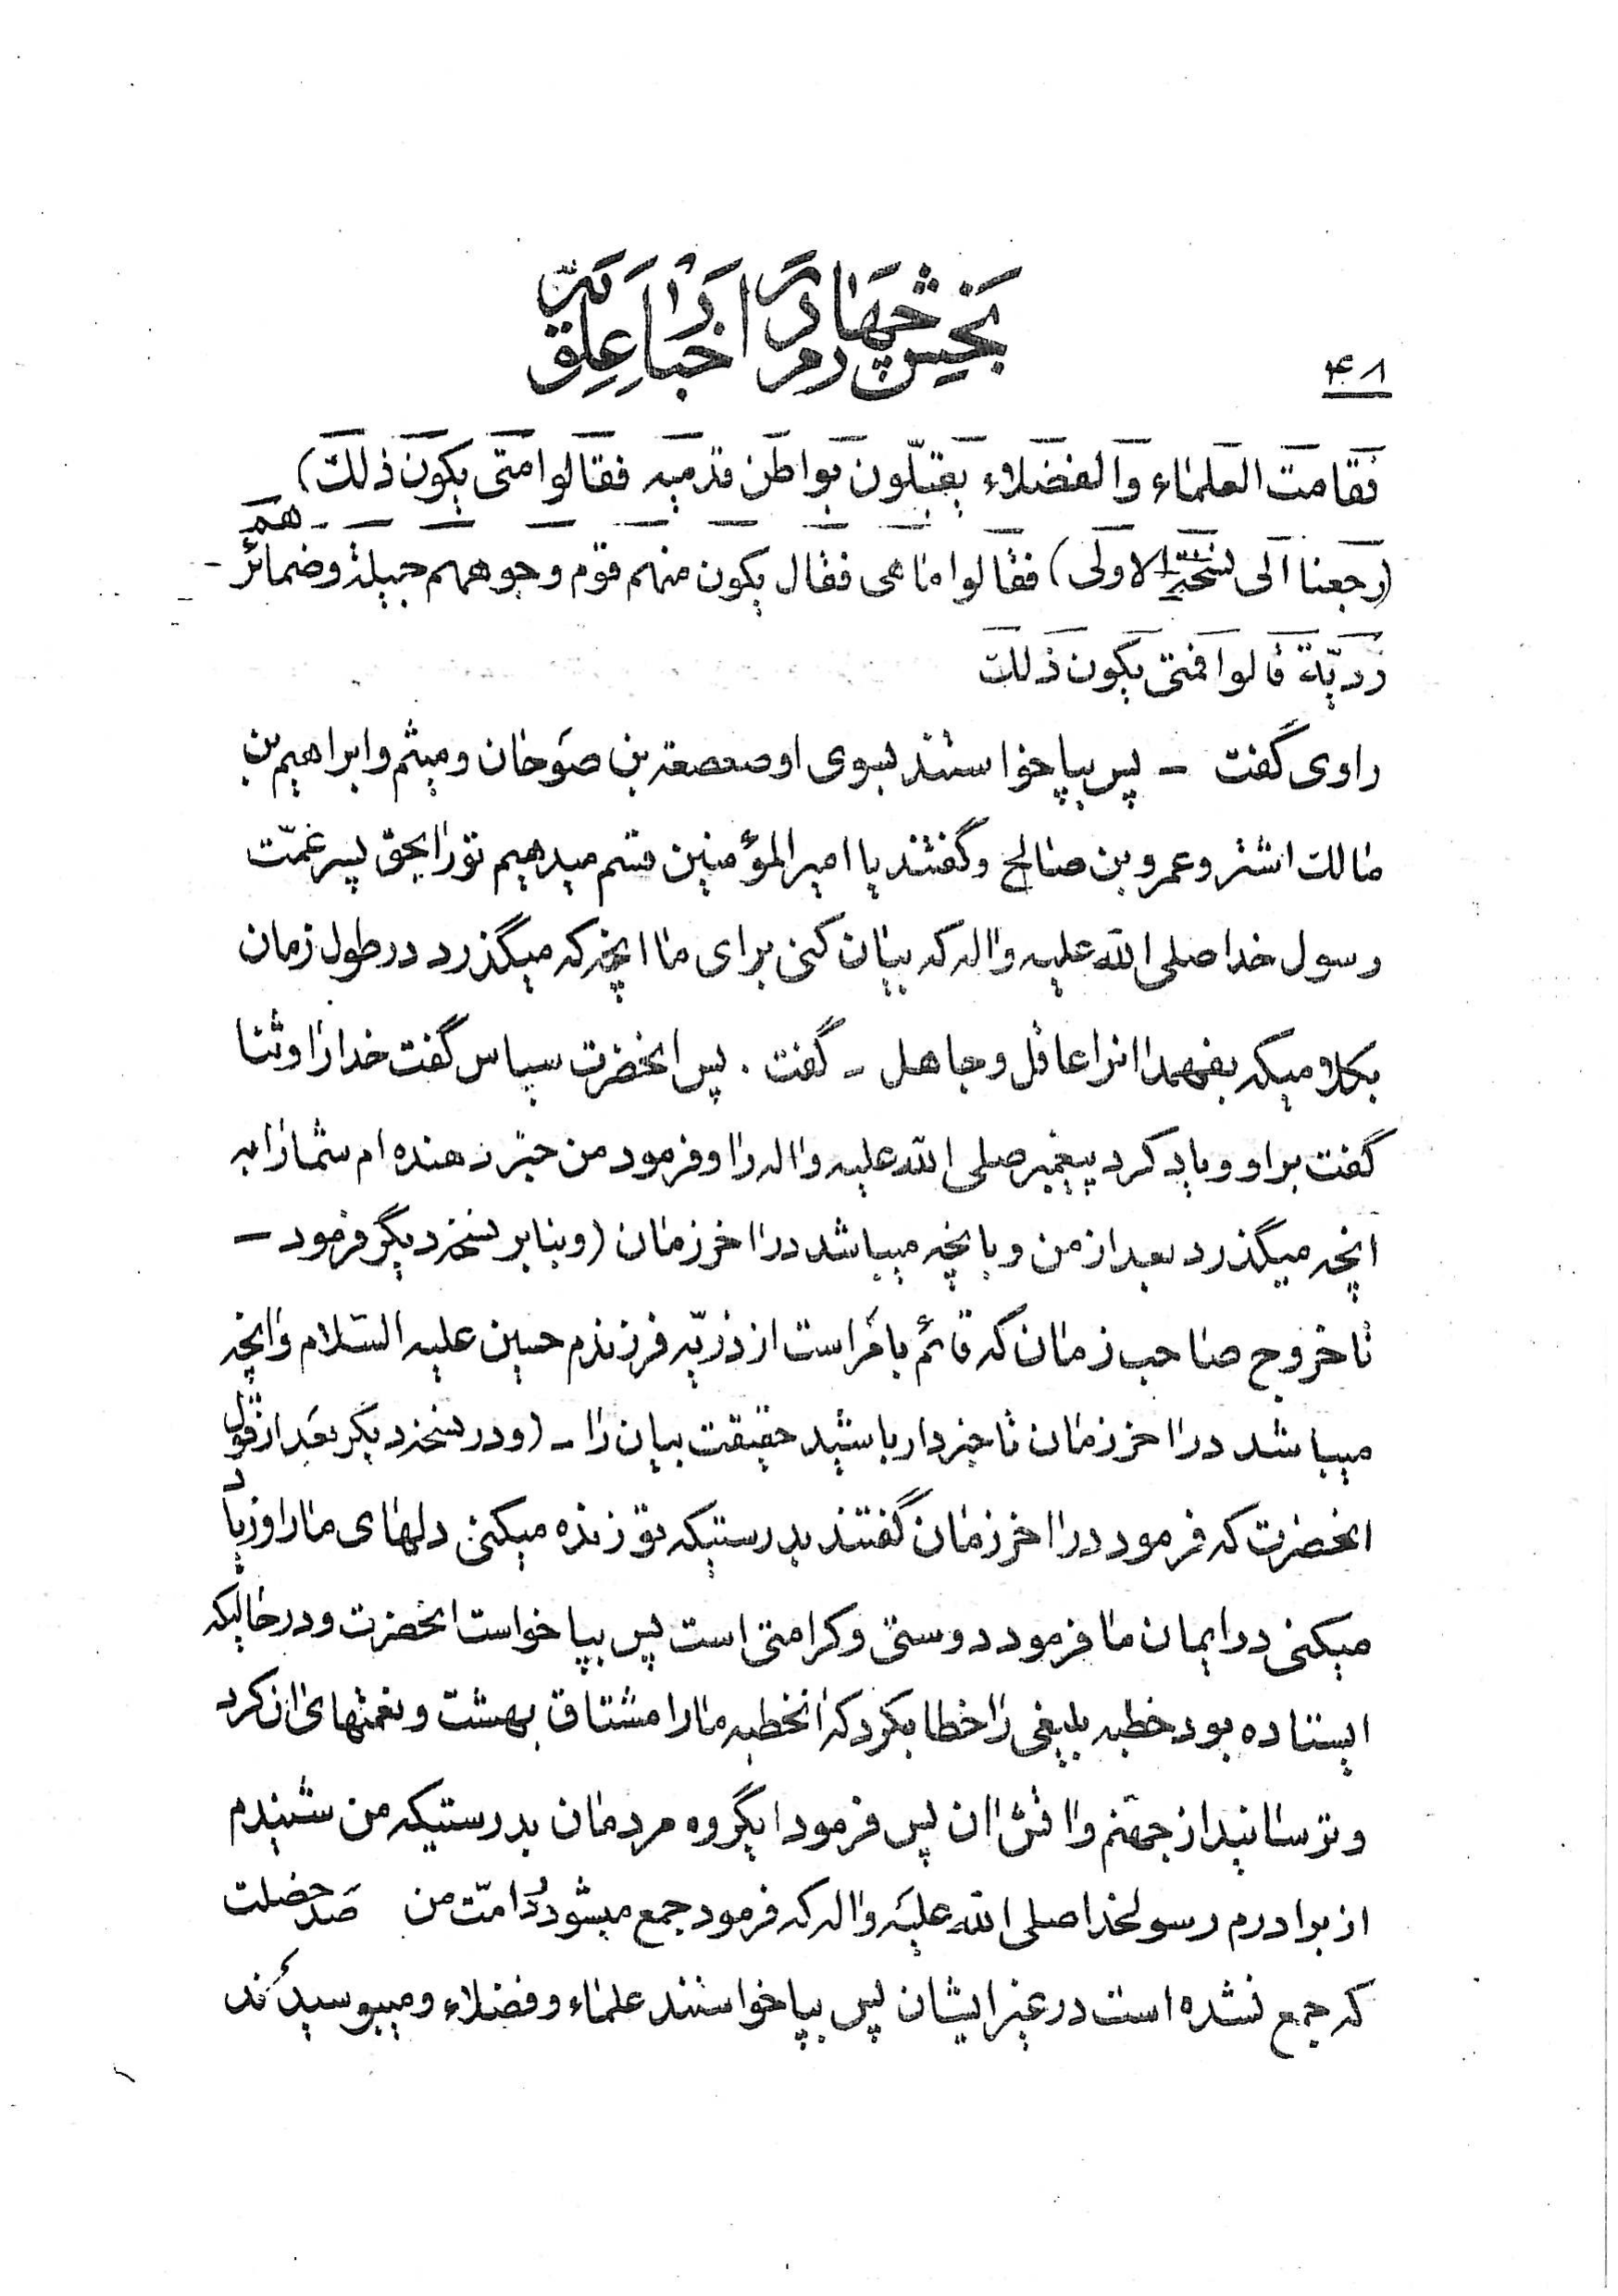 بخش چهارم در اخبار علویّه
۴۰۸
فقامت العلماء والفضلاء یقبّلون بواطن قدمیه فقالوا متی یکون ذلک)
(رجعنا الی نسخة الاولی) فقالوا ما هی فقال یکون منهم قوم وجوههم جمیلة وضمائرهم
ردیّة قالوا فمتی یکون ذلک
راوی گفت - پس بپا خواستند بسوی او صعصعة بن صوحان و میثم و ابراهیم بن
مالک اشتر و عمرو بن صالح و گفتند یا امیرالمؤمنین قسم میدهیم تو را بحق پسر عمّت
رسول خدا صلی الله علیه واله که بیان کنی برای ما انچه که میگذرد در طول زمان
بکلامیکه بفهمد انرا عاقل و جاهل - گفت . پس انحضرت سپاس گفت خدا را و ثنا
گفت بر او و یاد کرد پیغمبر صلی الله علیه واله را و فرمود من خبر دهنده ام شما را به
انچه میگذرد بعد از من و بانچه میباشد در اخر زمان (و بنابر نسخه دیگر فرمود -
تا خروج صاحب زمان که قائم بامر است از ذریّه فرزندم حسین علیه السّلام و انچه
میباشد در اخر زمان تا خبردار باشید حقیقت بیان را - (و در نسخه دیگر بعد از قول
انحضرت که فرمود در اخر زمان گفتند بدرستیکه تو زنده میکنی دلهای ما را و زیاد
میکنی در ایمان ما فرمود دوستی و کرامتی است پس بپا خواست انحضرت و در حالیکه
ایستاده بود خطبه بلیغی را خطابکرد که انخطبه ما را مشتاق بهشت و نعمتهای ان کرد
و ترسانید از جهنّم و اتش ان پس فرمود ایگروه مردمان بدرستیکه من شنیدم
از برادرم رسولخدا صلی الله علیه واله که فرمود جمع میشود در امّت من صد خصلت
که جمع نشده است در غیر ایشان پس بپا خواستند علماء و فضلاء و میبوسیدند